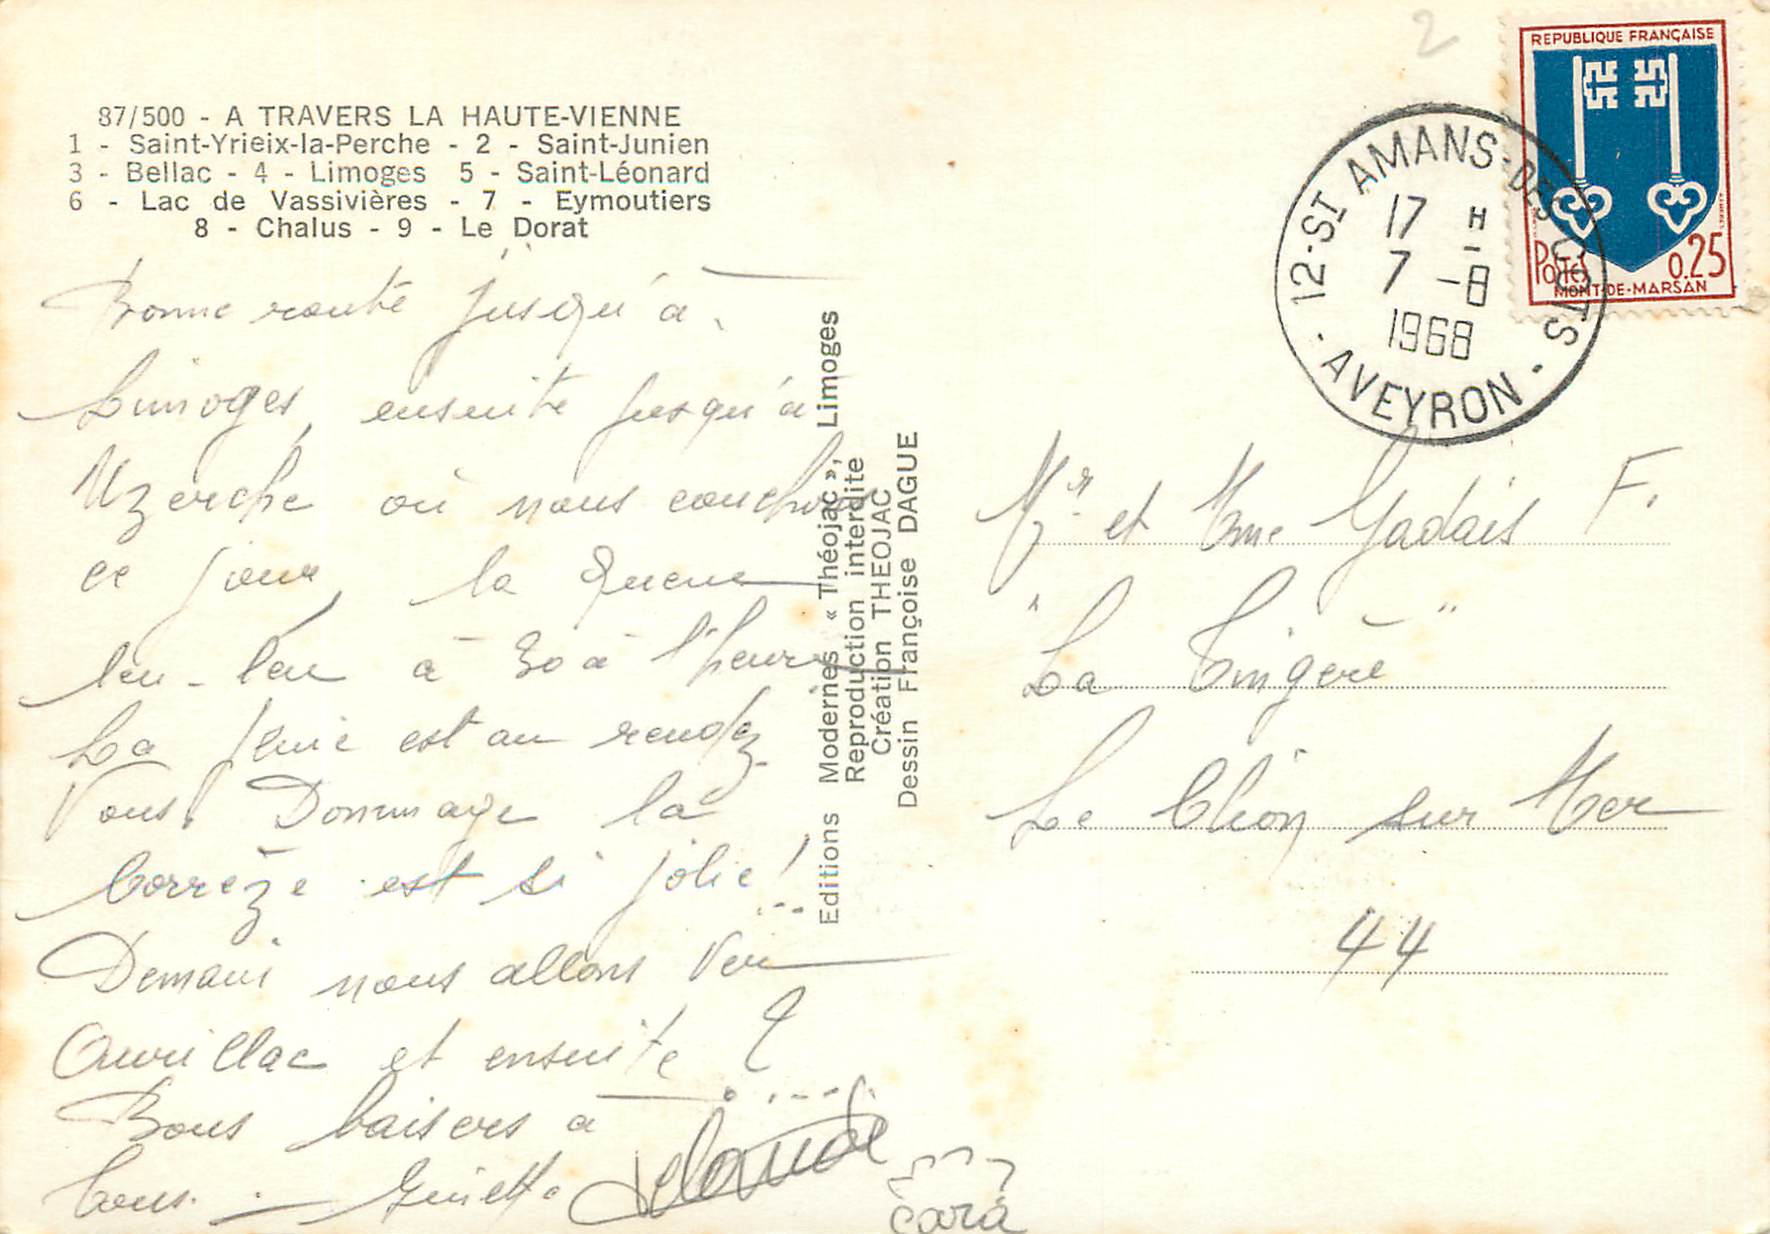 87/500 - A TRAVERS LA HAUTE-VIENNE
1 - Saint-Yrieix-la-Perche - 2 - Saint-Junien
3 - Bellac - 4 - Limoges 5 - Saint-Léonard
6 - Lac de Vassivières - 7 - Eymoutiers
8 - Chalus - 9 - Le Dorat
Bonne route jusqu'à
Limoges, ensuite jusqu'à
Uzerche où nous couchons
ce jour, la queue
leu-leu à 30 à l'heure
La pluie est au rendez
vous. Dommage la
Corrèze est si jolie !...
Demain nous allons vers
Aurillac et ensuite ?
Bons baisers à
tous. Ginette
Cara
Editions Modernes « Théojac », Limoges
Reproduction interdite
Création THEOJAC
Dessin Françoise DAGUE
2
REPUBLIQUE FRANÇAISE
Postes 0.25
MONT-DE-MARSAN
12-ST AMANS-DES-COTS
17 H
7 -8
1968
AVEYRON
Mr et Mme Gadais F.
"La Tingère"
Le Clion sur Mer
44